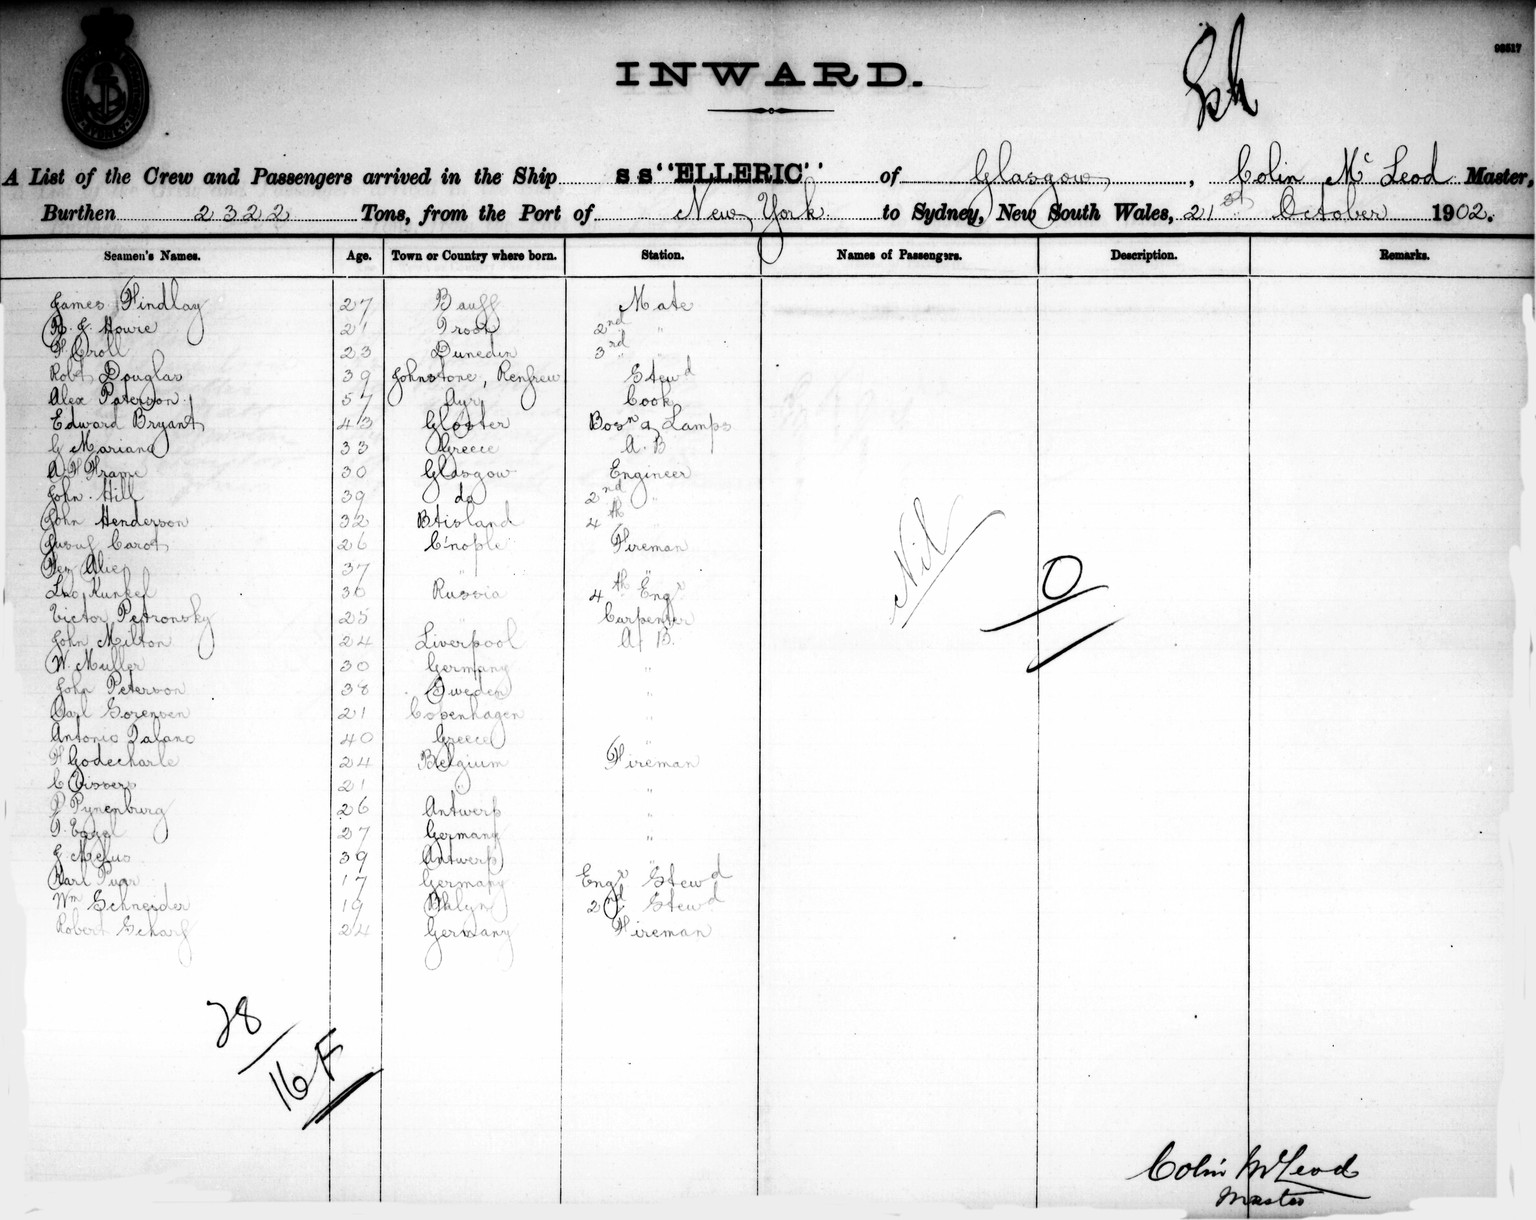 98517
INWARD.
A List of the Crew and Passengers arrived in the Ship ss "ELLERIC" of Glasgow, Colin McLeod Master,
Burthen 2322 Tons, from the Port of New York to Sydney, New South Wales, 21st October 1902.
Seamen's Names. Age. Town or Country where born. Station. Names of Passengers. Description. Remarks.
James Findlay 27 Banff Mate
R. J. Howie 21 Troon 2nd "
F Croll 23 Dunedin 3rd "
Robt Douglas 39 Johnstone, Renfrew Stewd
Alex Paterson 57 Ayr Cook
Edward Bryant 43 Gloster Bosn & Lamps
G Mariano 33 Greece A.B
A F Frame 30 Glasgow Engineer
John Hill 39 do 2nd "
John Henderson 32 Btisland 4th
26 C'nople Fireman
37 " "
Kunkel 36 Russia 4th Engr
Victor Petronsky 25 " Carpenter
John Milton 24 Liverpool A B.
W. Muller 30 Germany "
John Peterson 38 Sweden "
Carl Sorensen 21 Copenhagen "
Antonio 40 Greece "
F Godecharle 24 Belgium Fireman
C 21 "
P Pynenburg 26 Antwerp "
27 Germany "
J. 39 Antwerp "
Karl 17 Germany Engr Stewd
Wm Schneider 19 Bklyn 2nd Stewd
Robert Scharf 24 Germany Fireman
Nil
0
28
16 F
Colin McLeod
Master